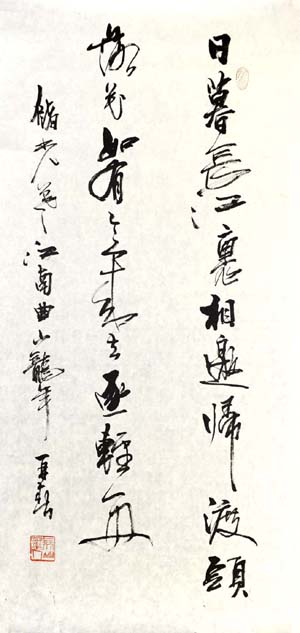 日暮長江裏相邀歸渡頭
落花如有意来去逐輕舟
儲光羲江南曲小龍年